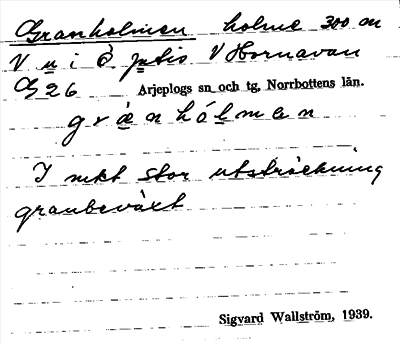 Granholmen holme 300 m
V u i Ö. Jutis V Hornavan
G 26 Arjeplogs sn och tg, Norrbottens län.
græ̀nhólmen
I rikt stor utsträckning
granbeväxt
Sigvard Wallström, 1939.